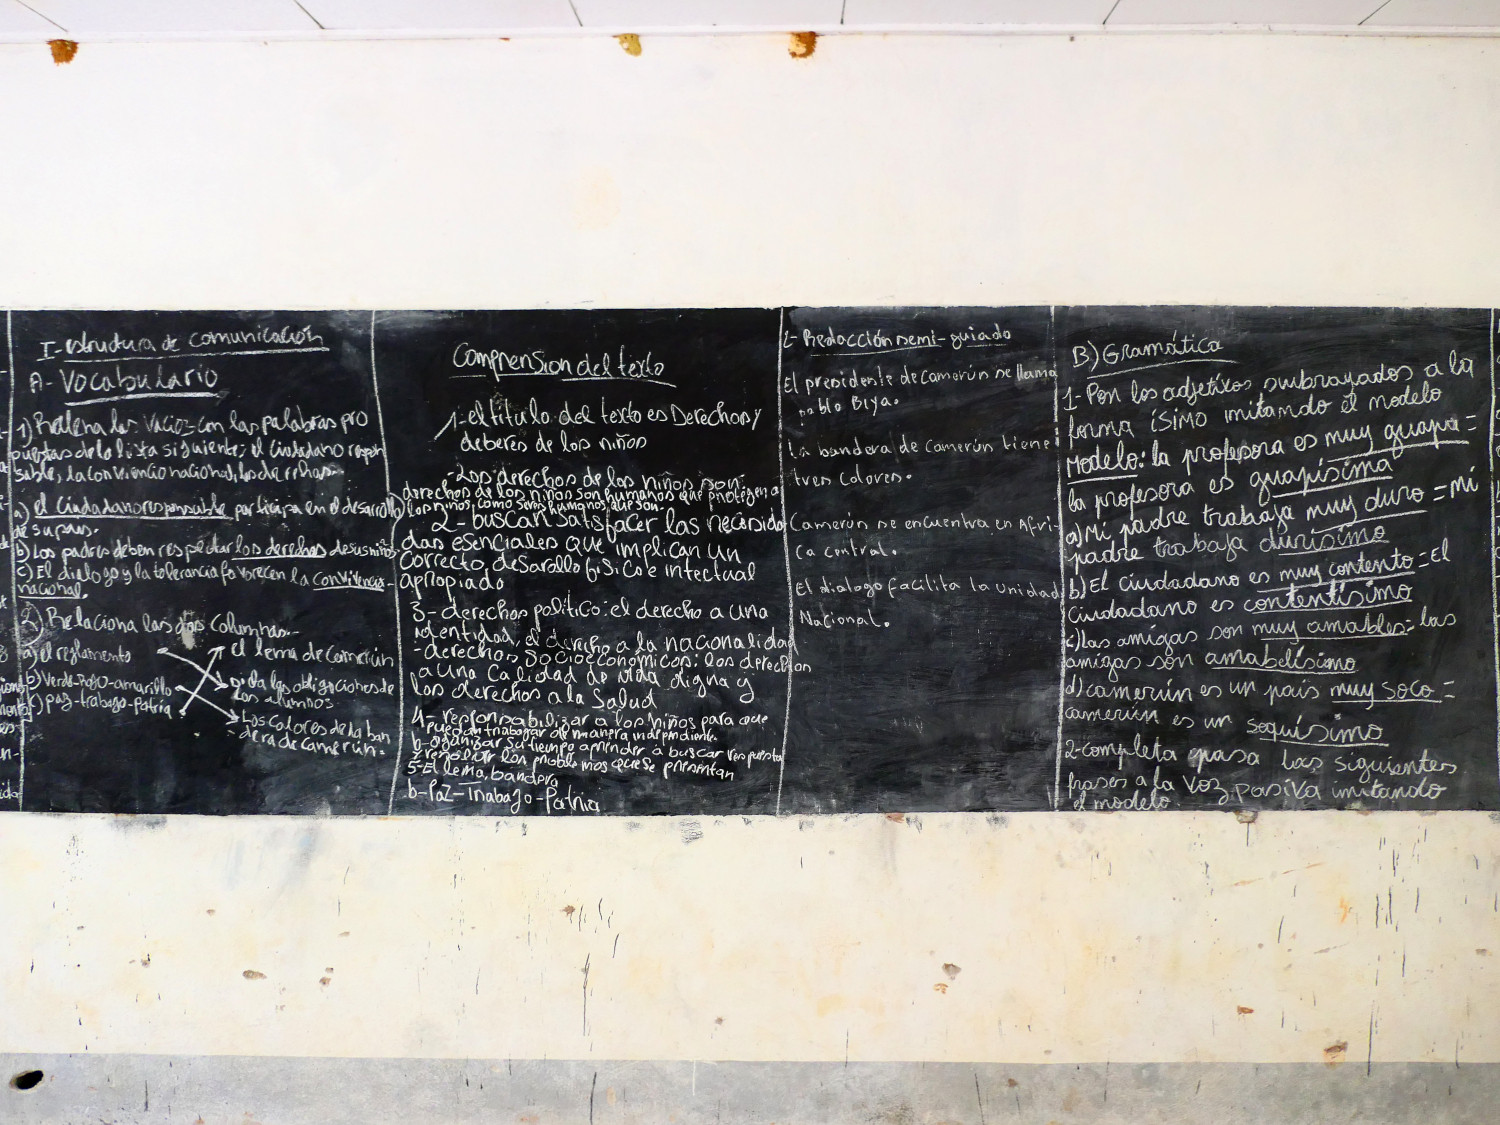 I- structura de comunicación
A- Vocabulario
1) Rellena los vacios con las palabras pro
puestas de la lista siguiente; el ciudadano respon
sable, la convivencia nacional, los derechos.
a) el ciudadano responsable participa en el desarrollo
de su pais.
b) Los padres deben respectar los derechos de sus niños
c) El dialogo y la tolerancia favorecen la convivencia
nacional.
2) Relaciona las dos columnas.
a) el reglamento
b) Verde-Rojo-amarillo
c) paz-trabajo-patria
el lema de Camerún
da las obligaciones de
los alumnos
Los colores de la ban
dera de Camerún.
Comprension del texto
1- el titulo del texto es Derechos y
deberes de los niños
- Los derechos de los niños son:
derechos de los niños son humanos que protegen a
los niños como seres humanos que son.
2- buscan satisfacer las necesida
das esenciales que implican un
correcto desarollo fisico e intectual
apropiado
3- derechos politico: el derecho a una
identidad, el derecho a la nacionalidad
- derechos socioeconomicos: los derechos
a una calidad de vida digna y
los derechos a la salud
4- responsabilizar a los niños para que
puedan trabagar de manera independiente.
b- organizar su tiempo aprender a buscar respuesta
resolver los problemas que se presentan
5- El lema, bandera
b- Paz-Trabajo-Patria
2- Redacción semi-guiado
El presidente de Camerún se llama
pablo Biya.
La bandera de Camerún tiene
tres colores.
Camerún se encuentra en Afri-
ca central.
El dialogo facilita la Unidad
Nacional.
B) Gramática
1- Pon los adjetivos subrayados a la
forma ísimo imitando el modelo
Modelo: la profesora es muy guapa =
la profesora es guapísima
a) Mi padre trabaja muy duro = mi
padre trabaja durísimo
b) El ciudadano es muy contento = El
ciudadano es contentísimo
c) Las amigas son muy amables = las
amigas son amabelísimo
d) camerún es un pais muy soco =
camerún es un sequísimo
2- completa opasa las siguientes
frases a la voz pasiva imitando
el modelo.